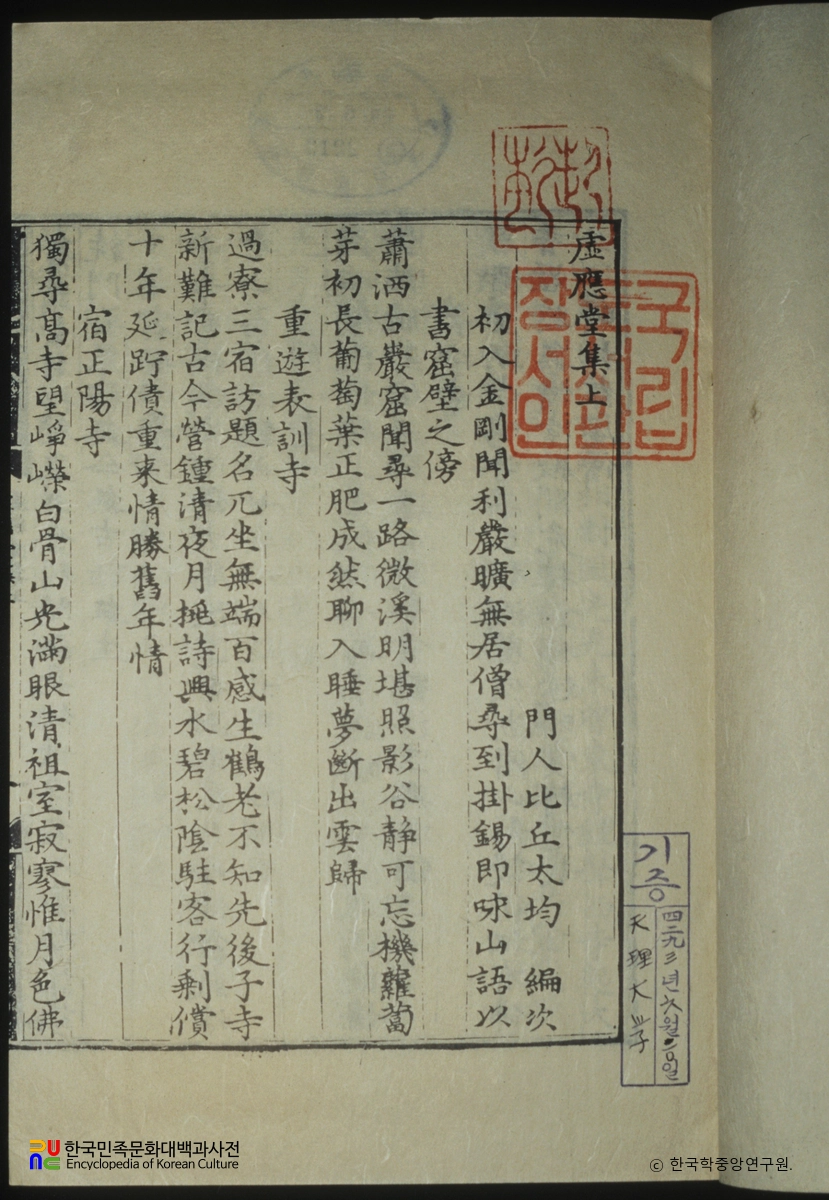 虛應堂集上
門人比丘太均 編次
初入金剛聞利嚴曠無居僧尋到掛錫即味山語以
書窟壁之傍
蕭洒古巖窟聞尋一路微溪明堪照影谷靜可忘機蘿蔔
芽初長葡萄葉正肥成然聊入睡夢斷出雲歸
重遊表訓寺
過寮三宿訪題名兀坐無端百感生鶴老不知先後子寺
新難記古今營鍾清夜月挑詩興水碧松陰駐客行剩償
十年延跱債重来情勝舊年情
宿正陽寺
獨尋高寺望崢嶸白骨山光滿眼清祖室寂寥惟月色佛
국립
도서관
장서인
기증
四二九三년六월二五일
天理大学
한국민족문화대백과사전
Encyclopedia of Korean Culture
© 한국학중앙연구원.